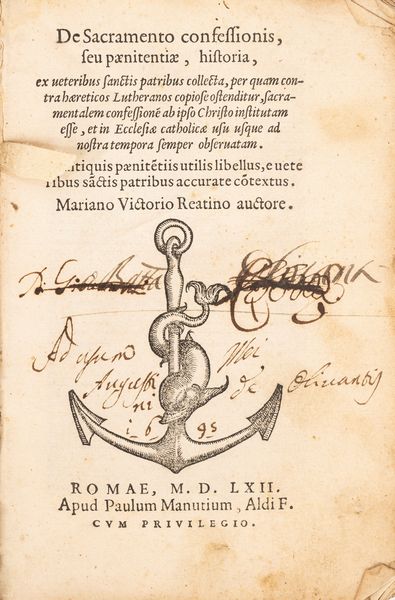 De Sacramento confessionis,
seu pænitentiæ, historia,
ex ueteribus sanctis patribus collecta, per quam con-
tra hæreticos Lutheranos copiose ostenditur, sacra-
mentalem confessionē ab ipso Christo institutam
esse, et in Ecclesiæ catholicæ usu usque ad
nostra tempora semper obseruatam.
ntiquis pænitētiis utilis libellus, e uete
ribus sāctis patribus accurate cōtextus.
Mariano Victorio Reatino auctore.
Ad usum Mei
Augusti de Oliuantis
ni
1695
ROMAE, M. D. LXII.
Apud Paulum Manutium, Aldi F.
CVM PRIVILEGIO.